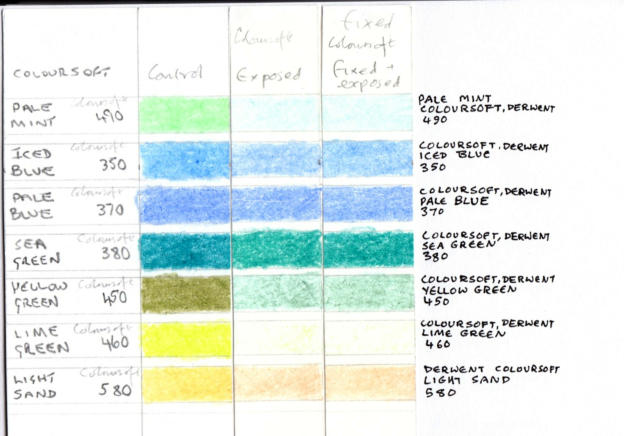 COLOURSOFT
Control
Coloursoft
Exposed
Fixed
Coloursoft
Fixed +
exposed
PALE Coloursoft
MINT 490
PALE MINT
COLOURSOFT, DERWENT
490
ICED Coloursoft
BLUE 350
COLOURSOFT, DERWENT
ICED BLUE
350
PALE Coloursoft
BLUE 370
COLOURSOFT, DERWENT
PALE BLUE
370
SEA Coloursoft
GREEN 380
COLOURSOFT, DERWENT
SEA GREEN
380
YELLOW Coloursoft
GREEN 450
COLOURSOFT, DERWENT
YELLOW GREEN
450
LIME Coloursoft
GREEN 460
COLOURSOFT, DERWENT
LIME GREEN
460
LIGHT Coloursoft
SAND 580
DERWENT COLOURSOFT
LIGHT SAND
580